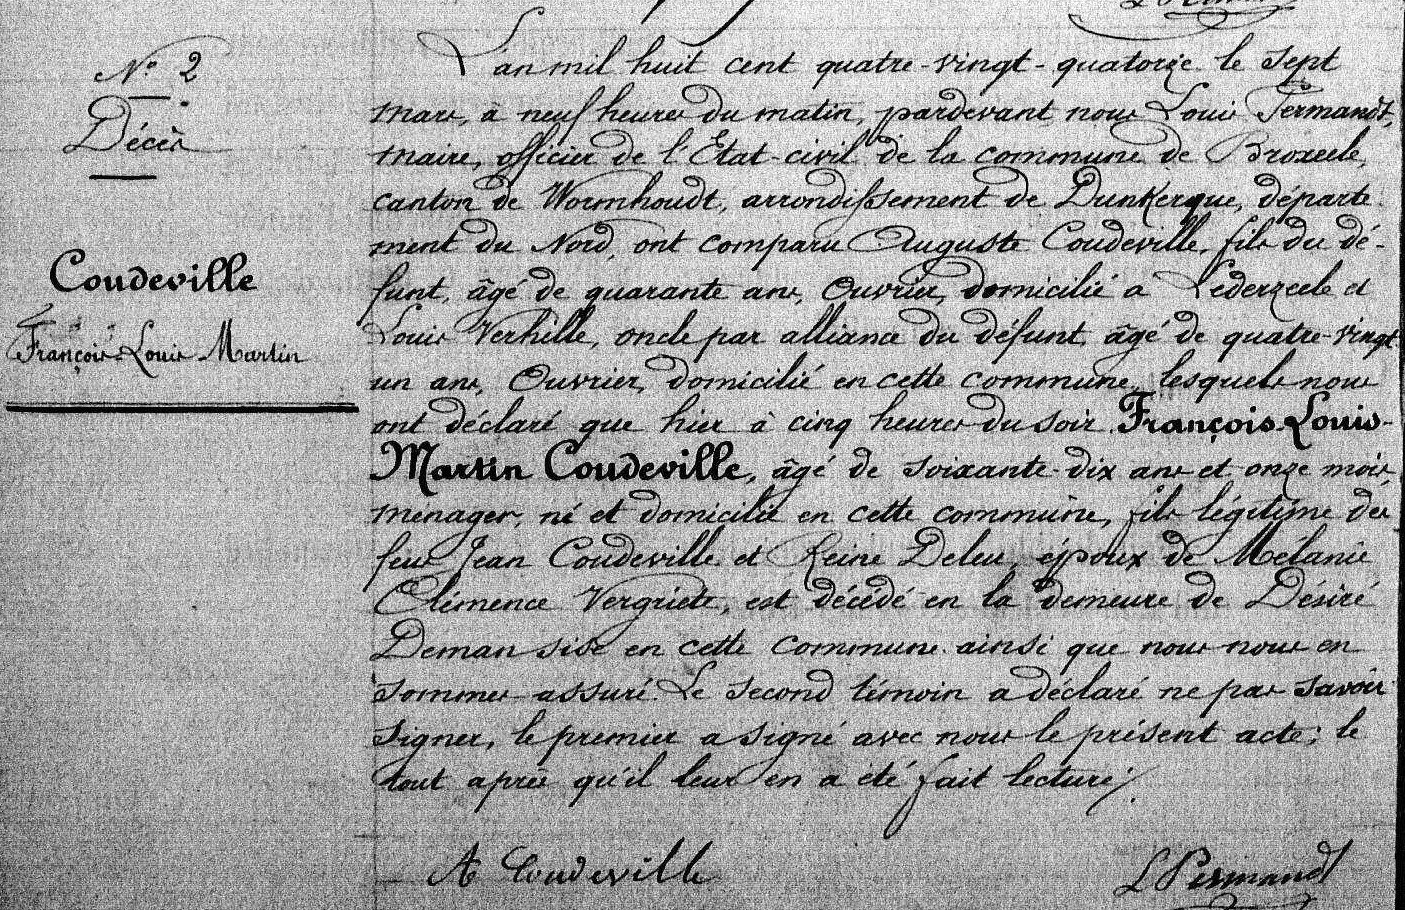 N° 2
Décès
Coudeville
François-Louis-Martin
L'an mil huit cent quatre-vingt-quatorze le sept
mars, à neuf heures du matin, pardevant nous Louis Fermandt,
maire, officier de l'Etat-civil de la commune de Broxeele,
canton de Wormhoudt, arrondissement de Dunkerque, départe-
ment du Nord, ont comparu Auguste Coudeville, fils du dé-
funt, âgé de quarante ans, Ouvrier, domicilié a Lederzeele et
Louis Verhille, oncle par alliance du défunt, âgé de quatre-vingt
un ans, Ouvrier, domicilié en cette commune, lesquels nous
ont déclaré que hier à cinq heures du soir François-Louis-
Martin Coudeville, âgé de soixante-dix ans et onze mois,
ménager, né et domicilié en cette commune, fils légitime des
feus Jean Coudeville et Reine Deleu, époux de Mélanie
Clémence Vergriete, est décédé en la demeure de Désiré
Deman sise en cette commune ainsi que nous nous en
sommes assuré. Le second témoin a déclaré ne pas savoir
signer, le premier a signé avec nous le présent acte; le
tout après qu'il leur en a été fait lecture /.
A Coudeville
L Fermandt